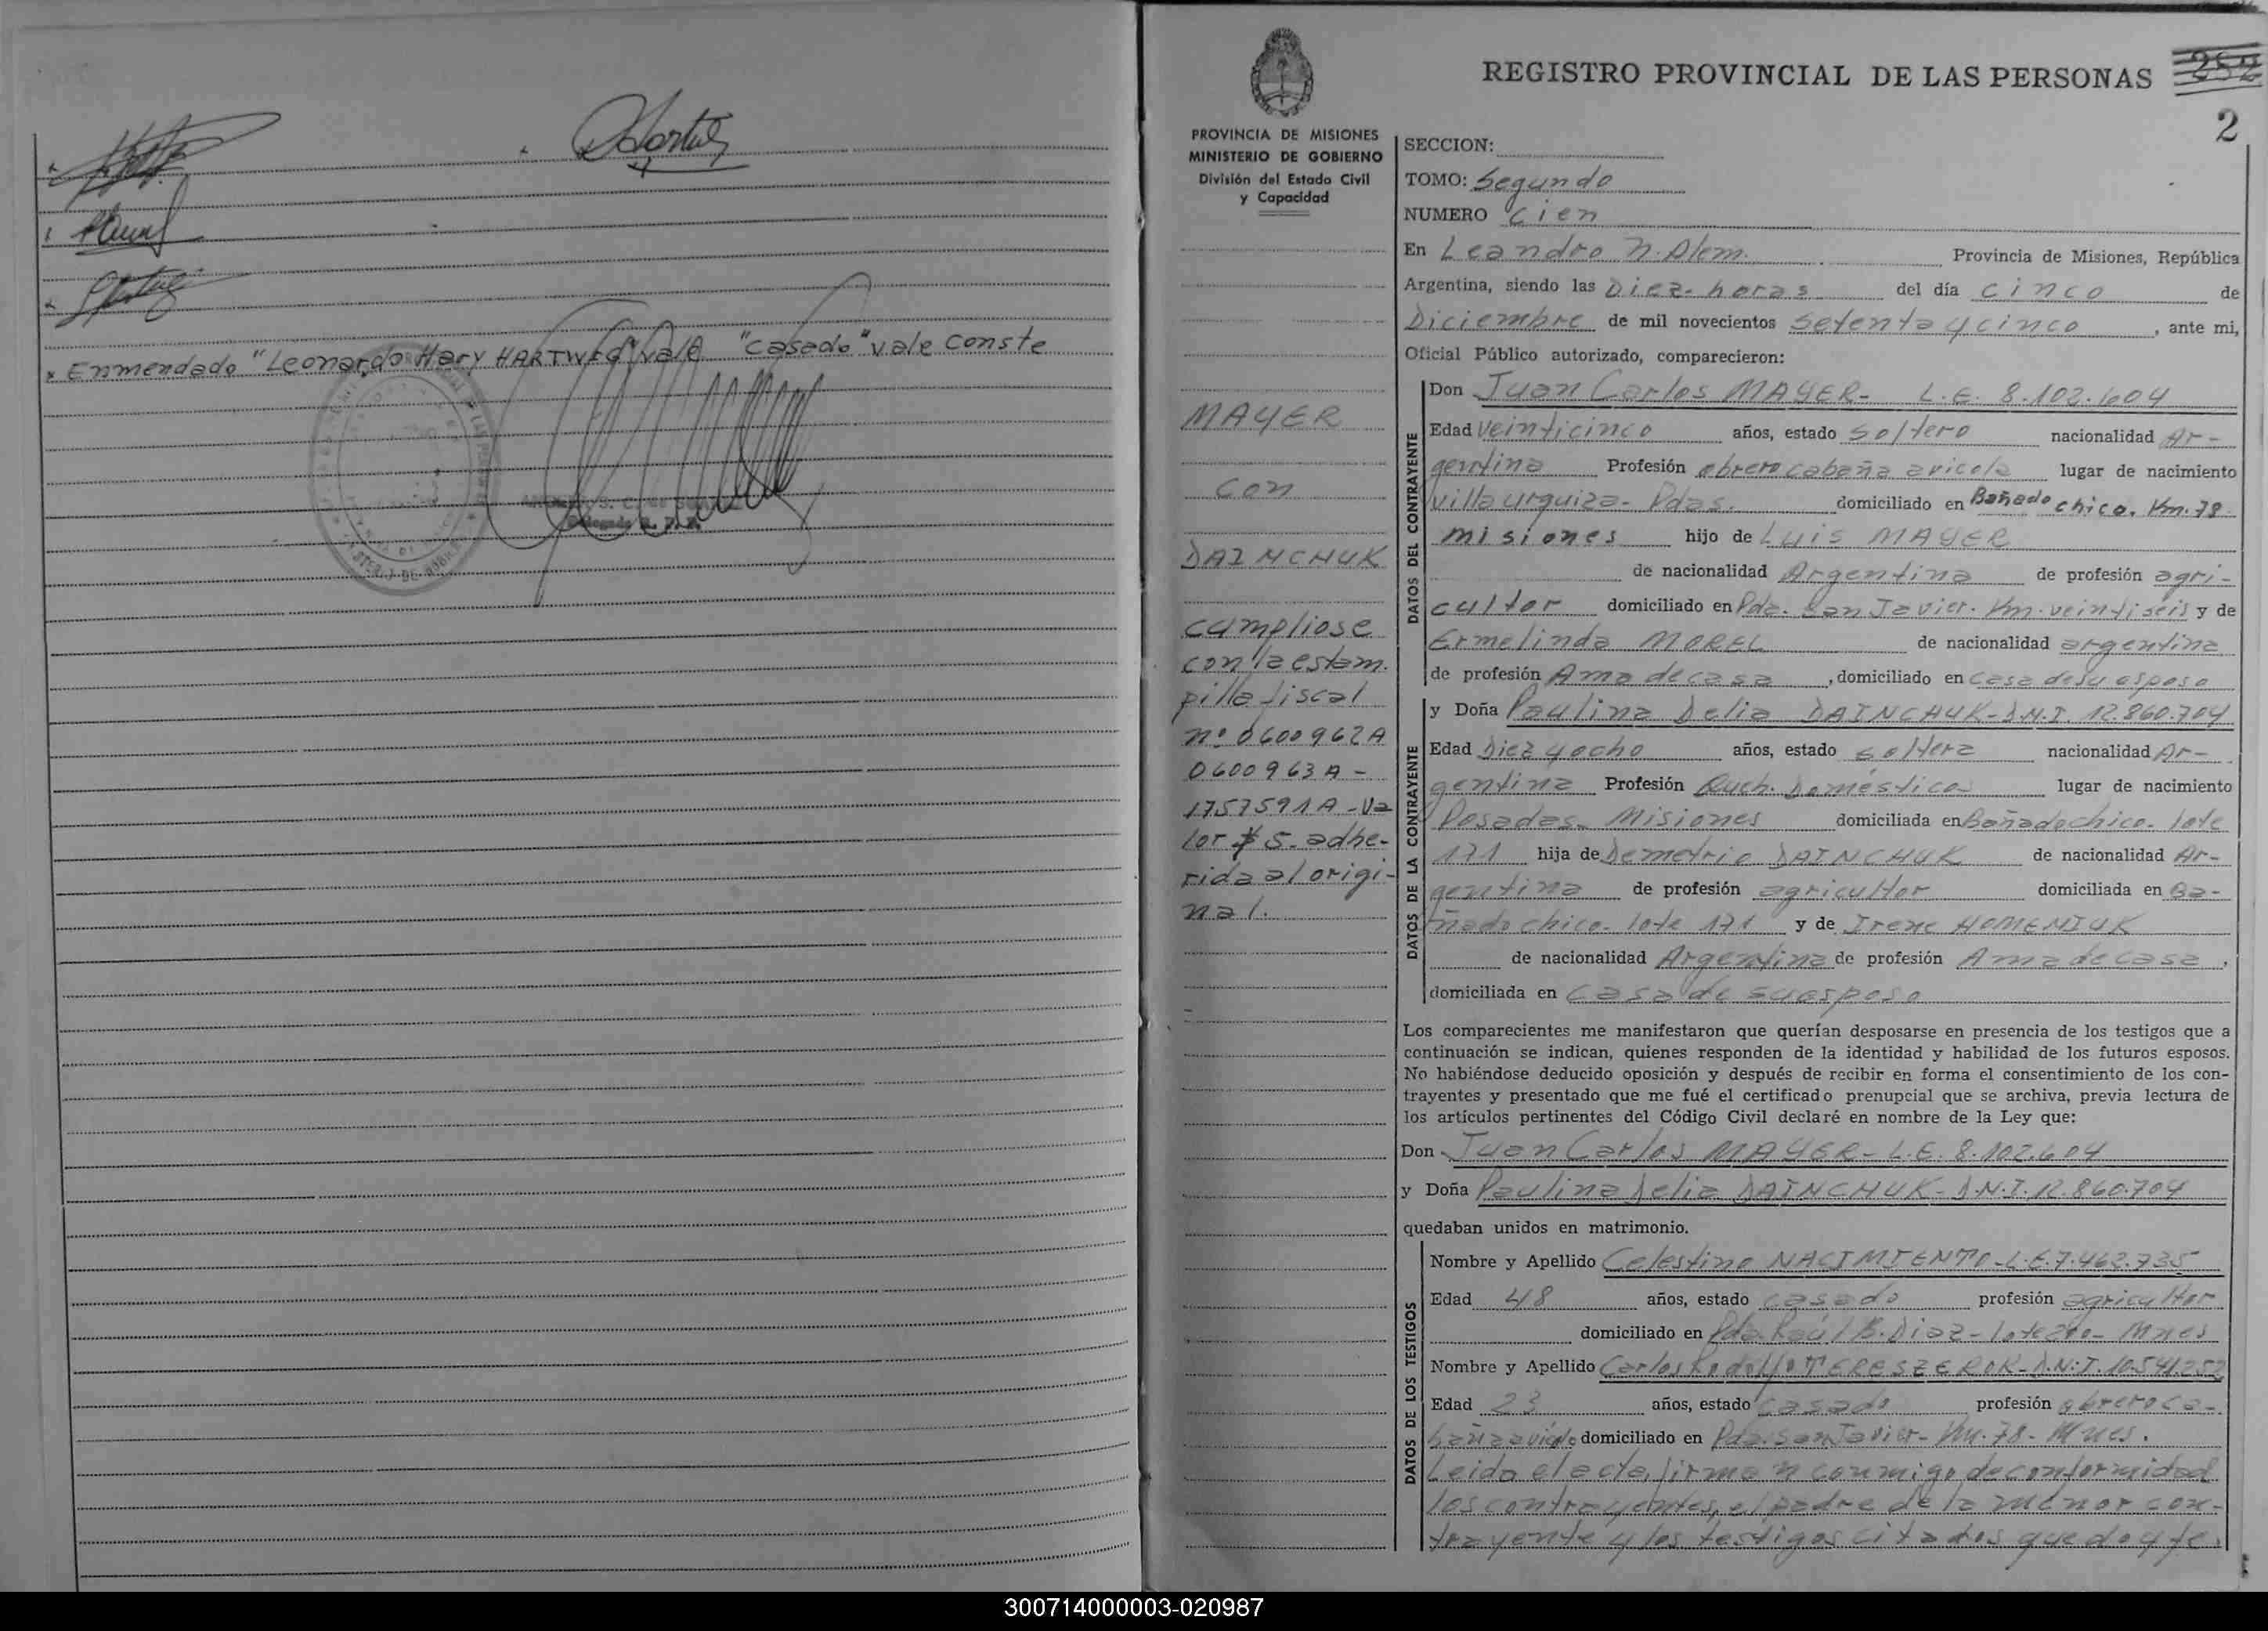 * Enmendado "Leonardo Hary HARTWEG" vale "casado" vale conste
REGISTRO PROVINCIAL DE LAS PERSONAS 282
2
PROVINCIA DE MISIONES
MINISTERIO DE GOBIERNO
División del Estado Civil
y Capacidad
MAYER
con
DAINCHUK
cumpliose
con la estam.
pilla fiscal
nº 0600962A
0600963A -
1757591A - Va
lor $ 5. adhe-
rida al origi-
nal.
SECCION:
TOMO: Segundo
NUMERO Cien
En Leandro N. Alem. Provincia de Misiones, República
Argentina, siendo las Diez horas del día cinco de
Diciembre de mil novecientos setenta y cinco, ante mi,
Oficial Público autorizado, comparecieron:
DATOS DEL CONTRAYENTE
Don Juan Carlos MAYER- L.E. 8.102.604
Edad veinticinco años, estado soltero nacionalidad Ar-
gentina Profesión obrero cabaña avicola lugar de nacimiento
Villa urquiza- Pdas. domiciliado en Bañado chico. Km. 78
misiones hijo de Luis MAYER
de nacionalidad Argentina de profesión agri-
cultor domiciliado en Pda. San Javier. Km. veintiseis y de
Ermelinda MOREL de nacionalidad argentina
de profesión Ama de casa, domiciliado en casa de su esposo
DATOS DE LA CONTRAYENTE
y Doña Paulina Delia DAINCHUK - D.N.I. 12.860.704
Edad Diez y ocho años, estado soltera nacionalidad Ar-
gentina Profesión Quch. Domésticos lugar de nacimiento
Posadas- Misiones domiciliada en Bañado chico- lote
171 hija de Demetrio DAINCHUK de nacionalidad Ar-
gentina de profesión agricultor domiciliada en Ba-
ñado chico- lote 171 y de Irene HOMENIUK
de nacionalidad Argentina de profesión Ama de casa,
domiciliada en casa de su esposo
Los comparecientes me manifestaron que querían desposarse en presencia de los testigos que a
continuación se indican, quienes responden de la identidad y habilidad de los futuros esposos.
No habiéndose deducido oposición y después de recibir en forma el consentimiento de los con-
trayentes y presentado que me fué el certificado prenupcial que se archiva, previa lectura de
los artículos pertinentes del Código Civil declaré en nombre de la Ley que:
Don Juan Carlos MAYER- L.E. 8.102.604
y Doña Paulina Delia DAINCHUK- D.N.I. 12.860.704
quedaban unidos en matrimonio.
DATOS DE LOS TESTIGOS
Nombre y Apellido Celestino NACIMIENTO - L.E. 7.462.735
Edad 48 años, estado casado profesión agricultor
domiciliado en Pda. Raúl B. Diaz - lote - Mnes
Nombre y Apellido Carlos Rodolfo TERESZEROK - D.N.I. 10.541.252
Edad 23 años, estado casado profesión obrero ca-
baña avicola domiciliado en Pda. San Javier- Km. 78 - Mnes.
Leida el acta, firman conmigo de conformidad
los contrayentes, el padre de la menor con-
trayente y los testigos citados que doy fe.
300714000003-020987